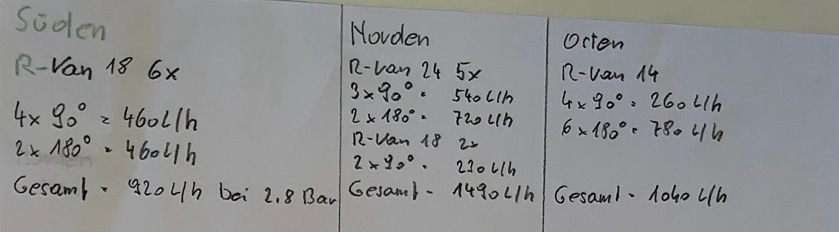 Süden
R-Van 18 6x
4x 90° = 460L/h
2x 180° = 460L/h
Gesamt = 920L/h bei 2.8 Bar
Norden
R-Van 24 5x
3x90° = 540L/h
2x180° = 720L/h
R-Van 18 2x
2x90° = 230L/h
Gesamt - 1490L/h
Osten
R-Van 14
4x90° = 260L/h
6x180° = 780L/h
Gesamt = 1040L/h